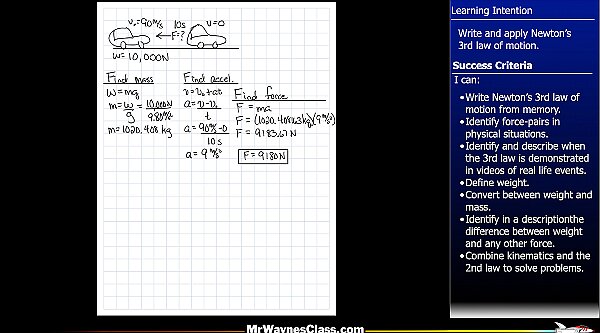 v₀=90m/s 10s v=0
F=?
W=10,000N
Find mass
W=mg
m=W/g=10,000N/9.80m/s²
m=1020.408 kg
Find accel.
v=v₀+at
a=v-v₀/t
a=90m/s-0/10s
a=9m/s²
Find force
F=ma
F=(1020.408kg)(9m/s²)
F=9183.67N
F=9180N
Learning Intention
Write and apply Newton's
3rd law of motion.
Success Criteria
I can:
•Write Newton's 3rd law of
motion from memory.
•Identify force-pairs in
physical situations.
•Identify and describe when
the 3rd law is demonstrated
in videos of real life events.
•Define weight.
•Convert between weight and
mass.
•Identify in a descriptionthe
difference between weight
and any other force.
•Combine kinematics and the
2nd law to solve problems.
MrWaynesClass.com